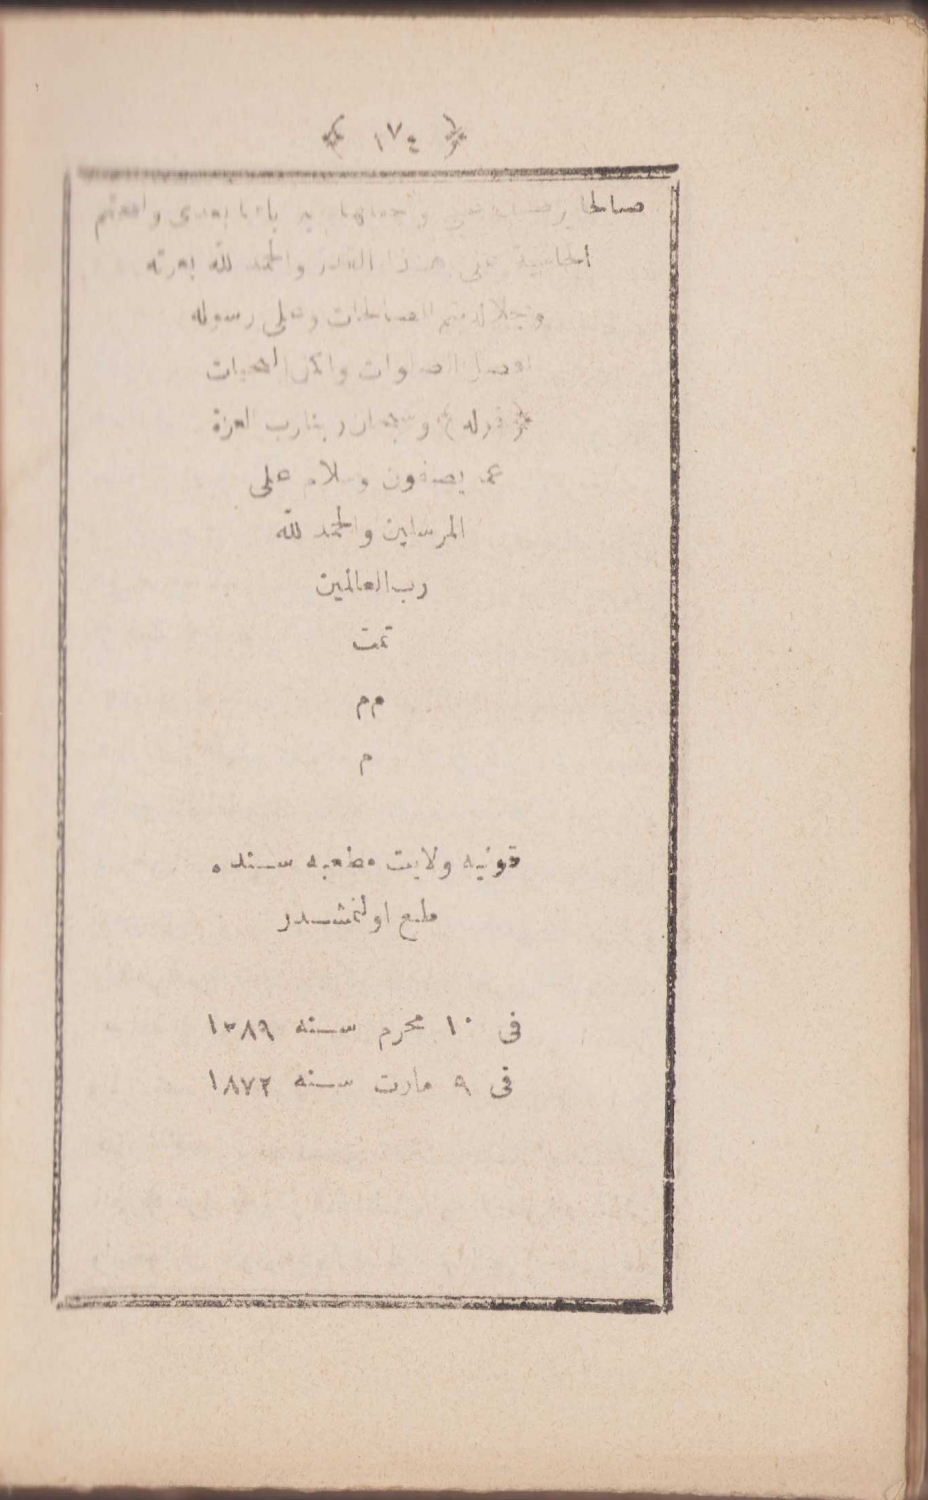 ﴿ ١٧٤ ﴾
صالحا بعدى
الحاشية على هذا القدر والحمد لله بعزته
وجلاله تتم الصالحات وعلى رسوله
افضل الصلوات واكمل التحيات
﴿ قوله ﴾ وسبحان ربنا رب العزة
عما يصفون وسلام على
المرسلين والحمد لله
رب العالمين
تمت
م م
م
قونيه ولايت مطبعه سنده
طبع اولنمشدر
فى ١٠ محرم سنه ١٢٨٩
فى ٩ مارت سنه ١٨٧٢